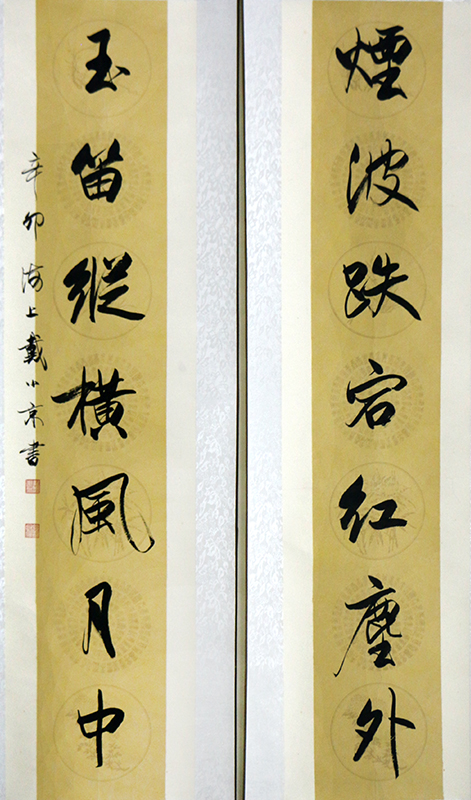 煙波跌宕紅塵外
玉笛縱橫風月中
辛卯海上戴小京書